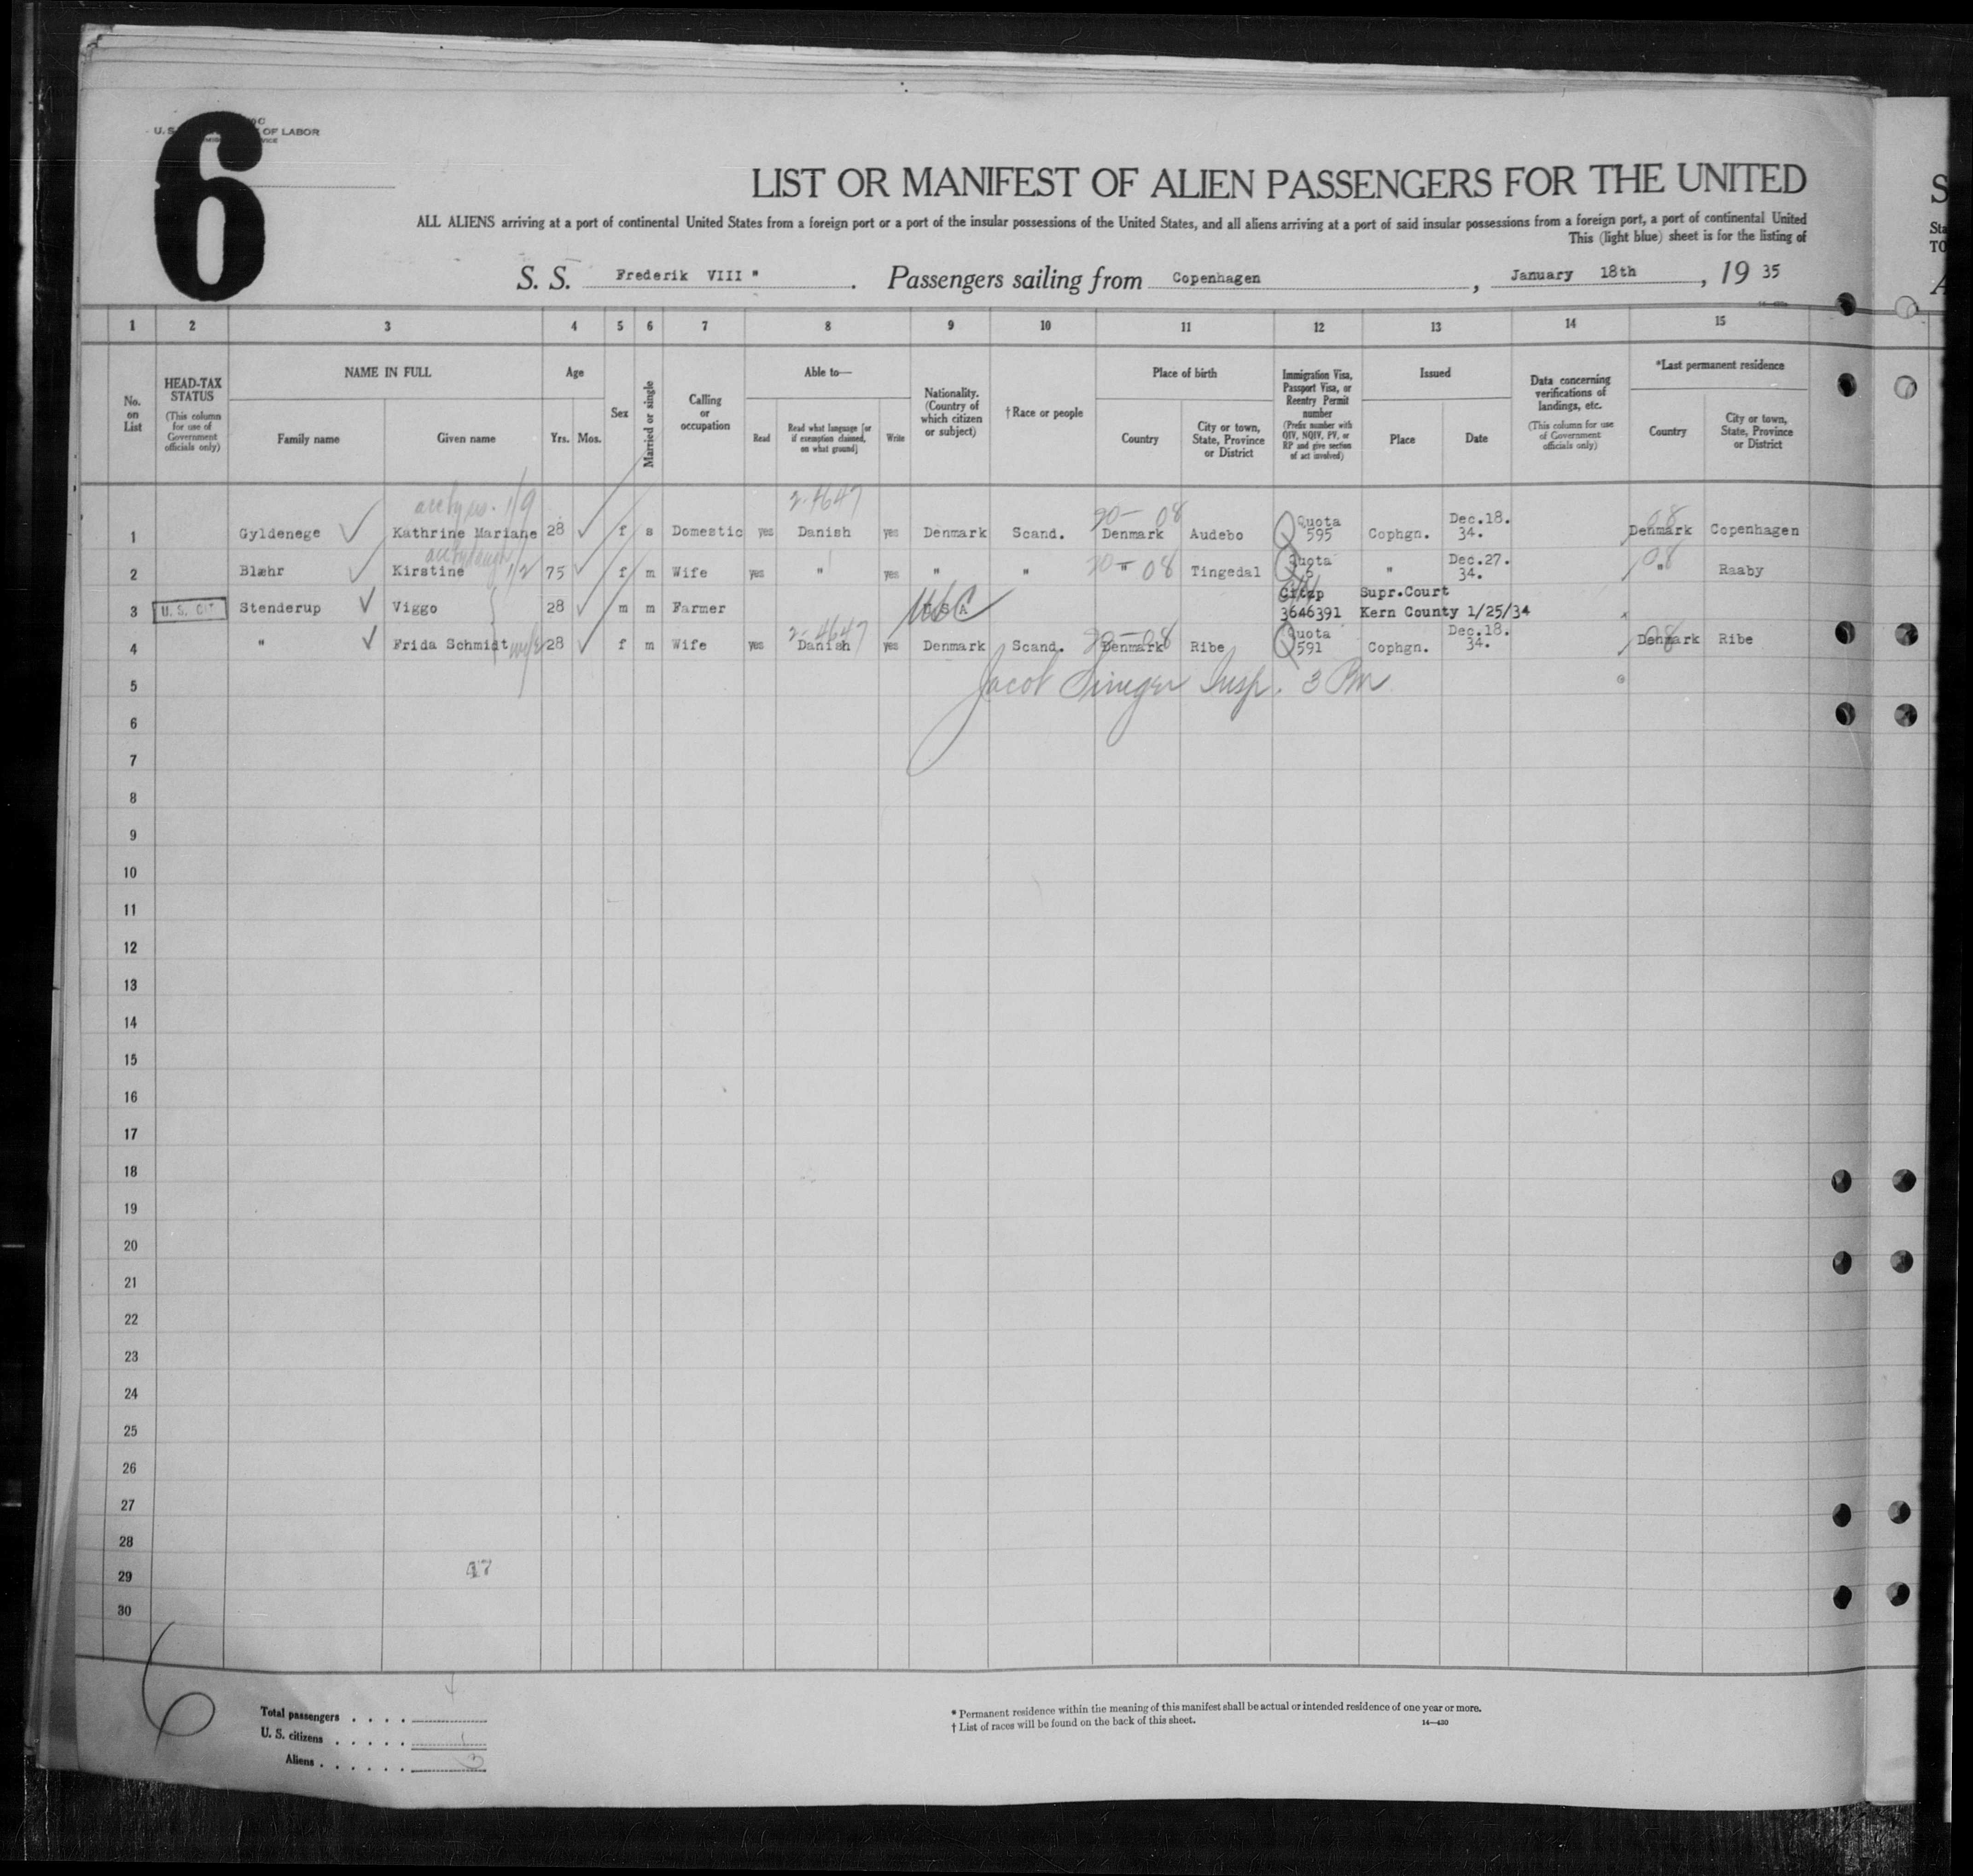 6
U. S. OF LABOR
LIST OR MANIFEST OF ALIEN PASSENGERS FOR THE UNITED
ALL ALIENS arriving at a port of continental United States from a foreign port or a port of the insular possessions of the United States, and all aliens arriving at a port of said insular possessions from a foreign port, a port of continental United
This (light blue) sheet is for the listing of
S. S. Frederik VIII " . Passengers sailing from Copenhagen , January 18th , 19 35
1 2 3 4 5 6 7 8 9 10 11 12 13 14 15
No. on List
HEAD-TAX STATUS (This column for use of Government officials only)
NAME IN FULL
Family name Given name
Age
Yrs. Mos.
Sex
Married or single
Calling or occupation
Able to—
Read Read what language [or if exemption claimed, on what ground] Write
Nationality. (Country of which citizen or subject)
†Race or people
Place of birth
Country City or town, State, Province or District
Immigration Visa, Passport Visa, or Reentry Permit number (Prefix number with QIV, NQIV, PV, or RP and give section of act involved)
Issued
Place Date
Data concerning verifications of landings, etc. (This column for use of Government officials only)
*Last permanent residence
Country City or town, State, Province or District
1/9 2-4647
20- 08 08
1 Gyldenege Kathrine Mariane 28 f s Domestic yes Danish yes Denmark Scand. Denmark Audebo Quota 595 Cophgn. Dec.18. 34. Denmark Copenhagen
1/2 20- 08 08
2 Blæhr Kirstine 75 f m Wife yes " yes " " " Tingedal Quota 6 " Dec.27. 34. " Raaby
3 U. S. CIT Stenderup Viggo 28 m m Farmer U S A USC 3646391 Supr.Court Kern County 1/25/34
2-4647 20-08 08
4 " Frida Schmidt 28 f m Wife yes Danish yes Denmark Scand. Denmark Ribe Quota 591 Cophgn. Dec.18. 34. Denmark Ribe
5 Jacob Singer Insp. 3 Pm
6
7
8
9
10
11
12
13
14
15
16
17
18
19
20
21
22
23
24
25
26
27
28
29 47
30
6
Total passengers . . . . 4
U. S. citizens . . . . . 1
Aliens . . . . . . 3
* Permanent residence within the meaning of this manifest shall be actual or intended residence of one year or more.
† List of races will be found on the back of this sheet. 14—430